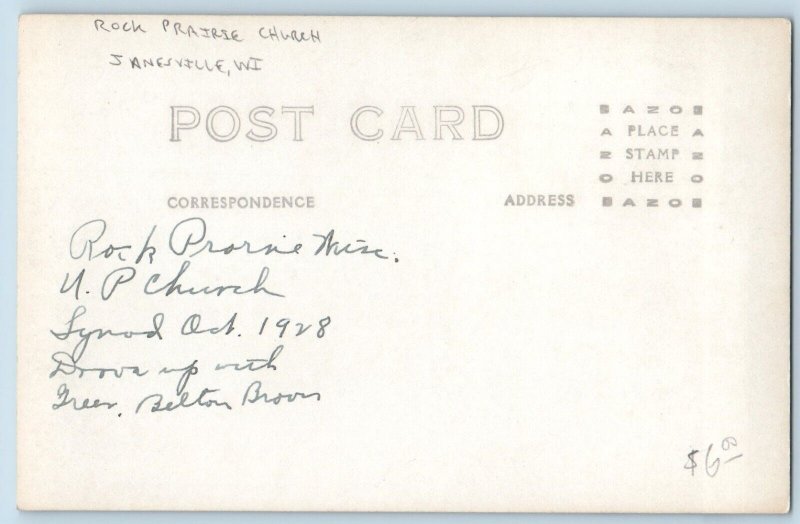 ROCK PRAIRIE CHURCH
JANESVILLE, WI
POST CARD
AZO
A PLACE A
Z STAMP Z
O HERE O
AZO
CORRESPONDENCE
ADDRESS
Rock Prarie Wisc.
U. P Church
Synod Oct. 1928
Drove up with
Greer, Belton Brown
$6.00